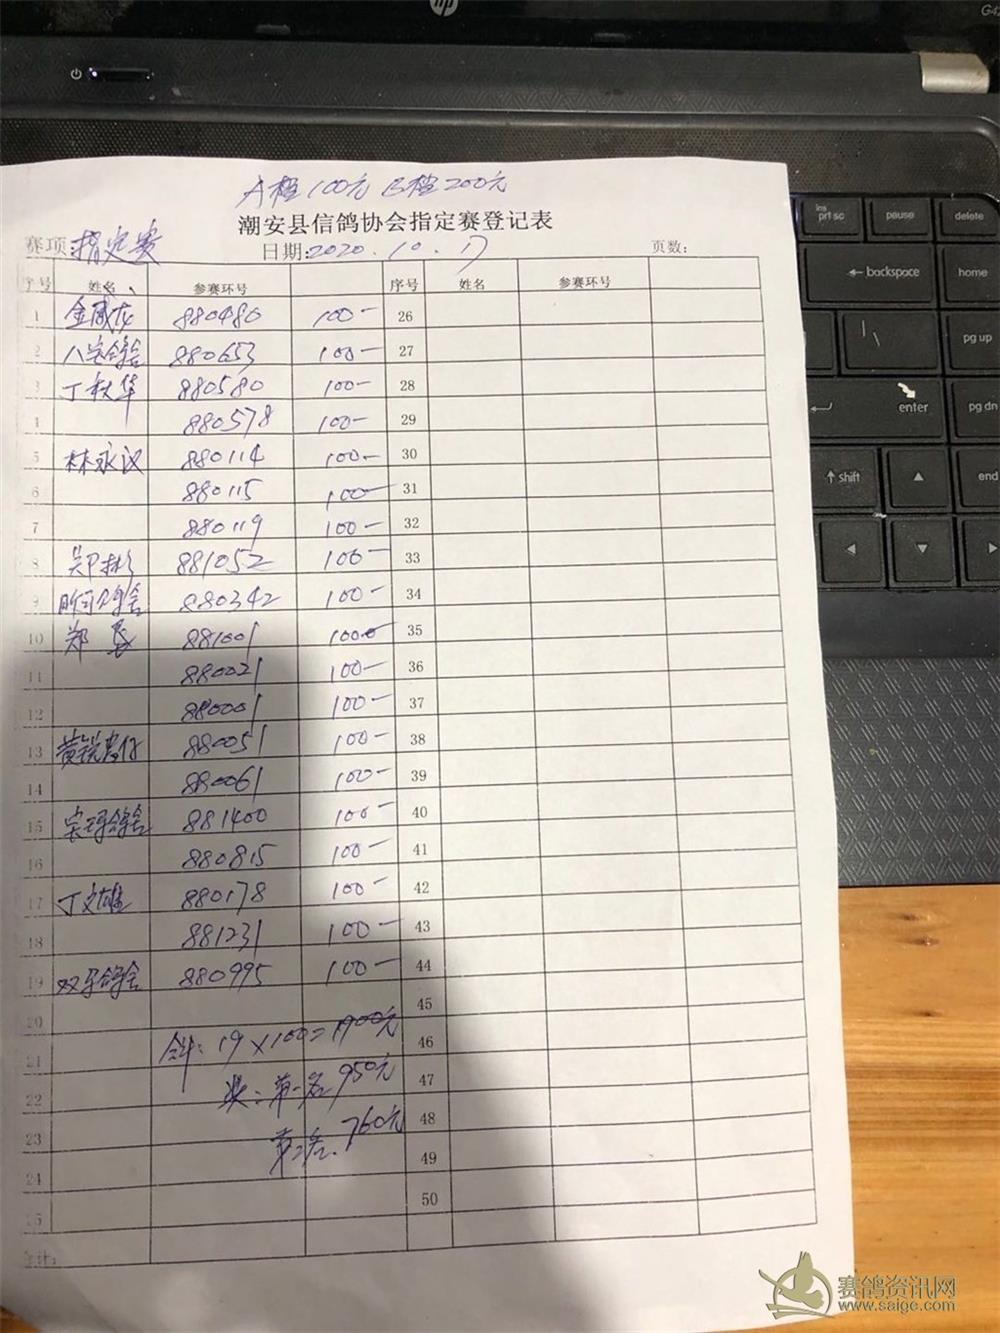 hp
A档100元 B档200元
潮安县信鸽协会指定赛登记表
赛项:指定赛 日期:2020.10.17 页数:
序号 姓名 参赛环号 序号 姓名 参赛环号
1 金咸龙 880480 100- 26
2 八宝鸽舍 880653 100- 27
3 丁秋华 880580 100- 28
880578 100- 29
5 林永汉 880114 100- 30
6 880115 100- 31
7 880119 100- 32
8 郑彬 881052 100- 33
9 鸽舍 880342 100- 34
10 郑 881001 100- 35
11 880021 100- 36
12 880001 100- 37
13 黄锐 880051 100- 38
14 880061 100- 39
15 鸽舍 881400 100- 40
16 880815 100- 41
17 丁文雄 880178 100- 42
18 881231 100- 43
19 双牙鸽舍 880995 100- 44
20 45
21 合计: 19×100=1900元 46
22 奖:第一名950元 47
23 第二名.760元 48
24 49
25 50
合计:
ins
prt sc
pause
delete
backspace
home
\ |
pg up
enter
pg dn
shift
end
赛鸽资讯网
www.saige.com